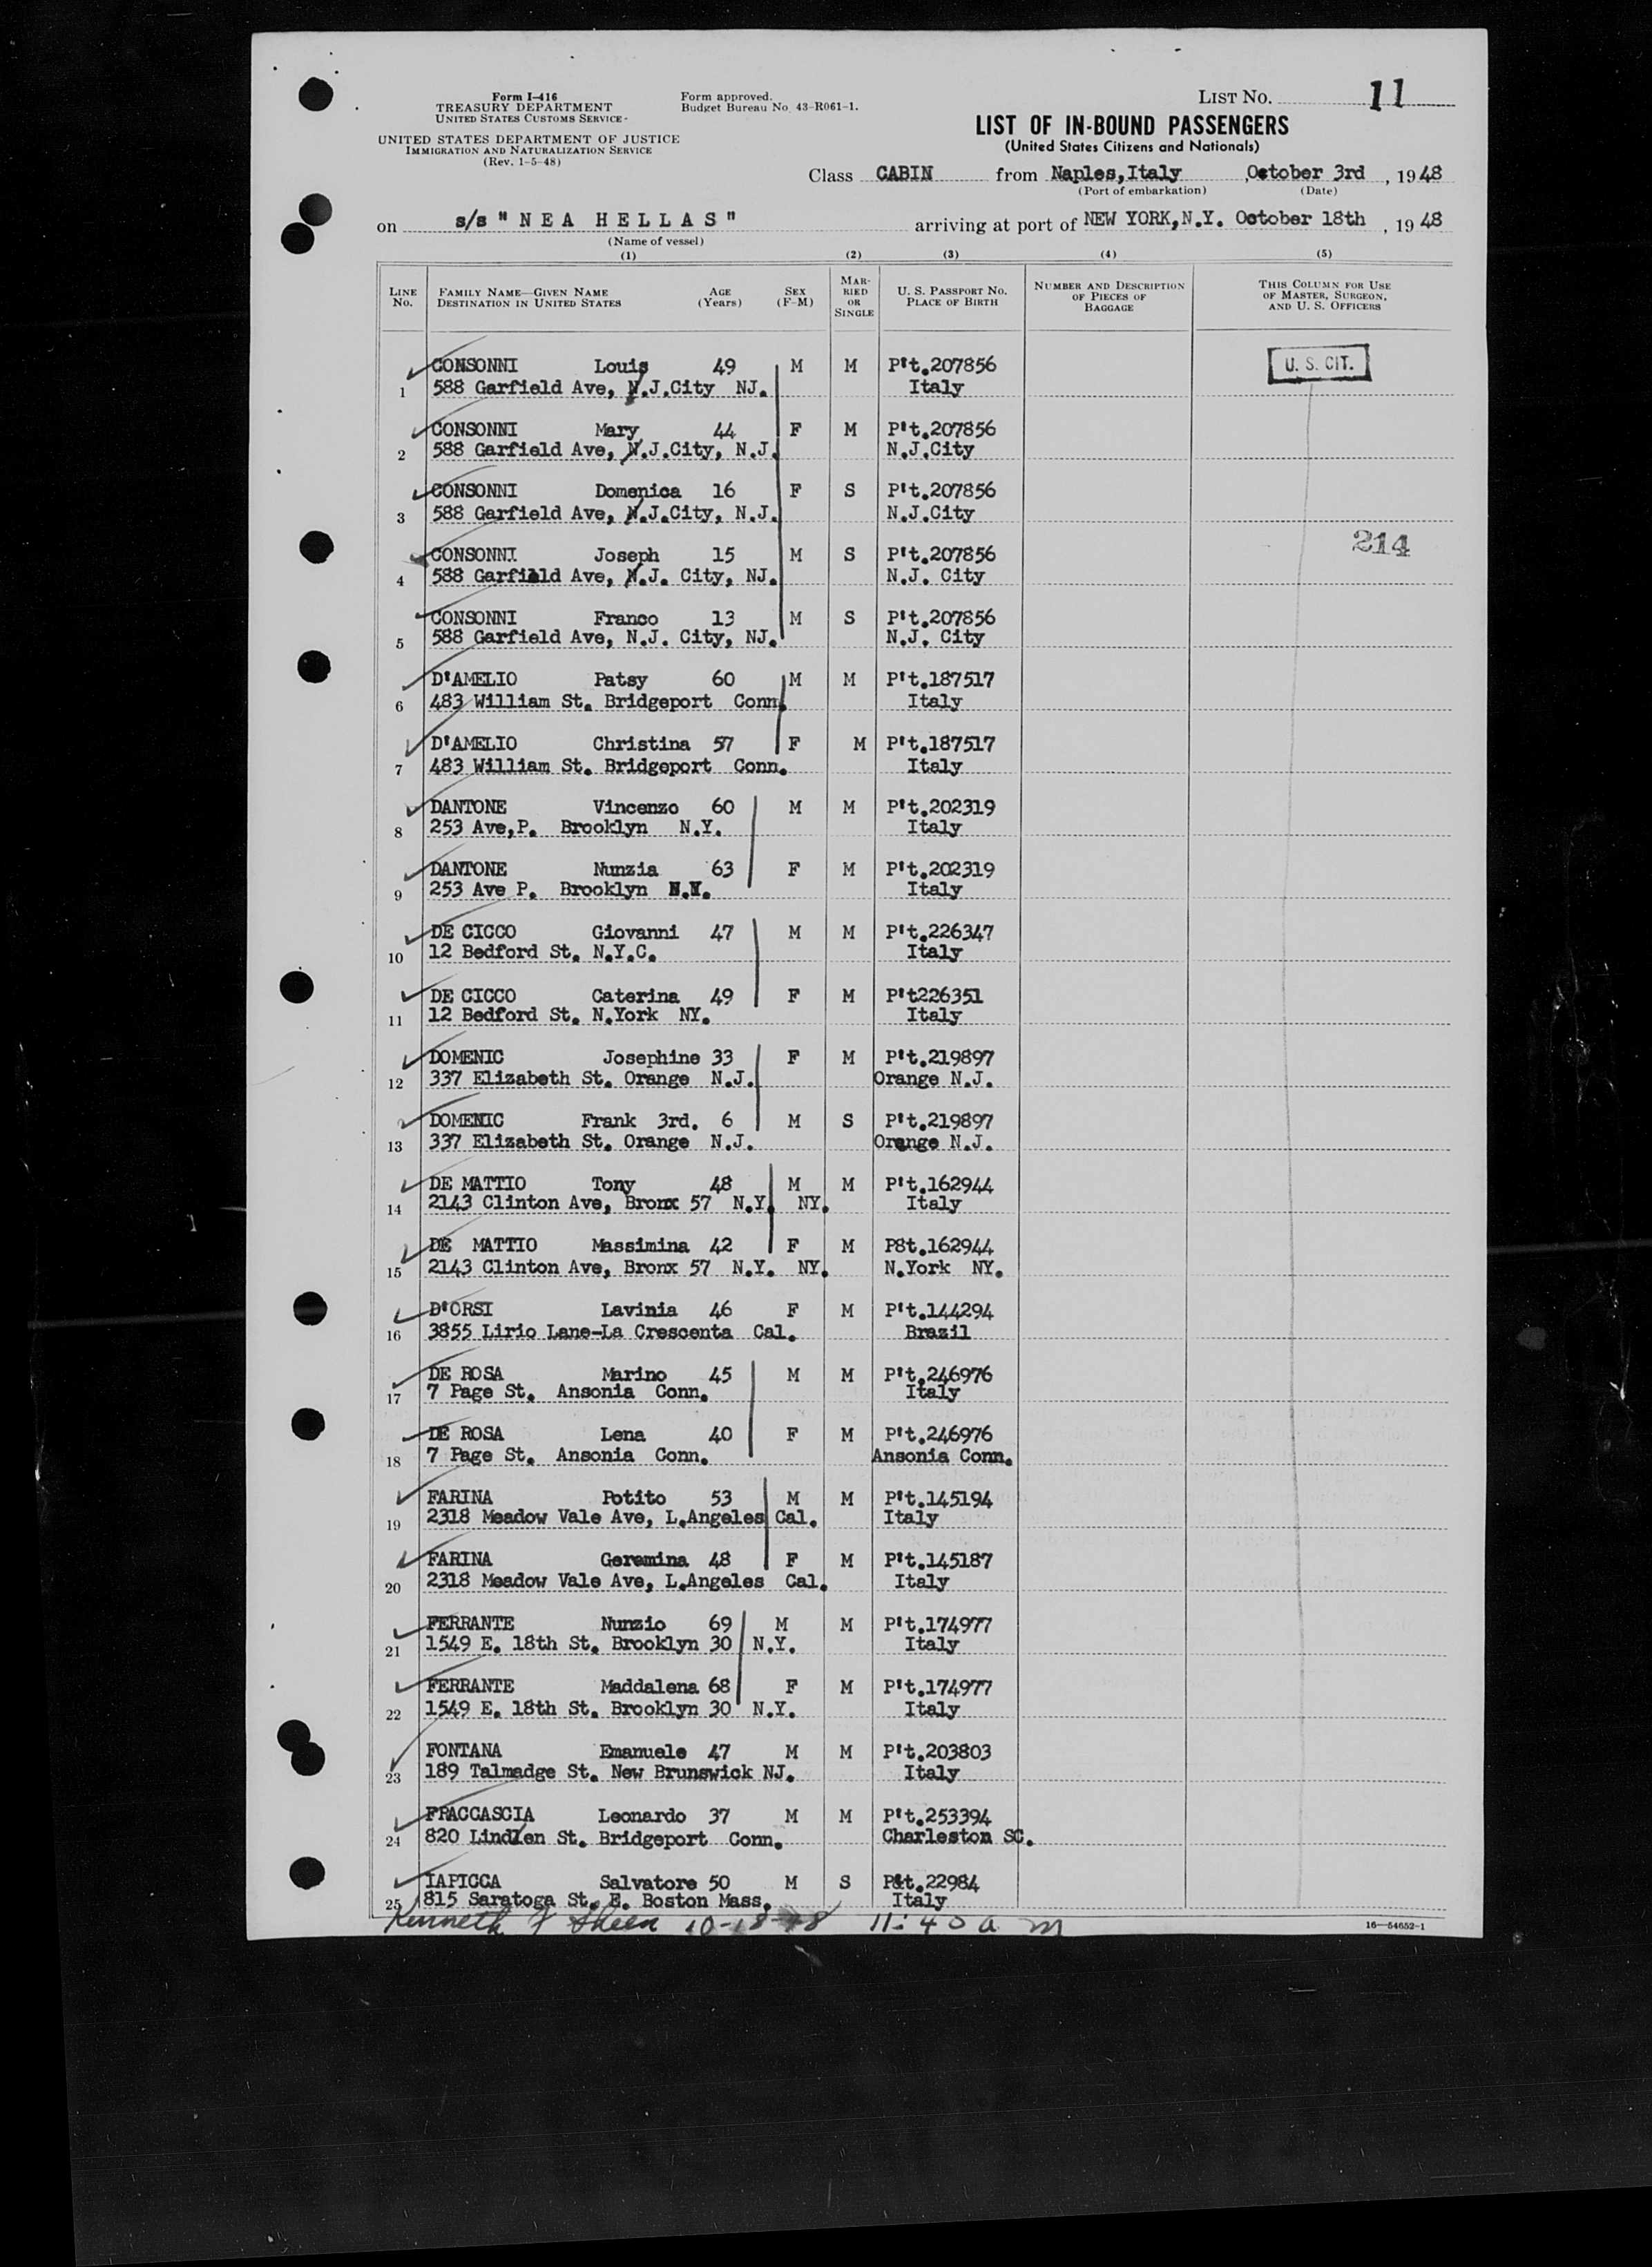 Form I-416
TREASURY DEPARTMENT
UNITED STATES CUSTOMS SERVICE
UNITED STATES DEPARTMENT OF JUSTICE
IMMIGRATION AND NATURALIZATION SERVICE
(Rev. 1-5-48)
Form approved.
Budget Bureau No. 43-R061-1.
LIST NO. 11
LIST OF IN-BOUND PASSENGERS
(United States Citizens and Nationals)
Class CABIN from Naples,Italy ,October 3rd , 1948
(Port of embarkation) (Date)
on s/s " N E A H E L L A S " arriving at port of NEW YORK,N.Y. October 18th , 1948
(Name of vessel)
(1) (2) (3) (4) (5)
LINE NO. FAMILY NAME—GIVEN NAME DESTINATION IN UNITED STATES AGE (Years) SEX (F-M) MARRIED OR SINGLE U. S. PASSPORT NO. PLACE OF BIRTH NUMBER AND DESCRIPTION OF PIECES OF BAGGAGE THIS COLUMN FOR USE OF MASTER, SURGEON, AND U. S. OFFICERS
CONSONNI Louis 49 M M P't.207856 U. S. CIT.
1 588 Garfield Ave, N.J.City NJ. Italy
CONSONNI Mary 44 F M P't.207856
2 588 Garfield Ave, N.J.City, N.J. N.J.City
CONSONNI Domenica 16 F S P't.207856
3 588 Garfield Ave, N.J.City, N.J. N.J.City
214
CONSONNI Joseph 15 M S P't.207856
4 588 Garfiald Ave, N.J. City, NJ. N.J. City
CONSONNI Franco 13 M S P't.207856
5 588 Garfield Ave, N.J. City, NJ. N.J. City
D'AMELIO Patsy 60 M M P't.187517
6 483 William St. Bridgeport Conn. Italy
D'AMELIO Christina 57 F M P't.187517
7 483 William St. Bridgeport Conn. Italy
DANTONE Vincenzo 60 M M P't.202319
8 253 Ave,P. Brooklyn N.Y. Italy
DANTONE Nunzia 63 F M P't.202319
9 253 Ave P. Brooklyn N.Y. Italy
DE CICCO Giovanni 47 M M P't.226347
10 12 Bedford St. N.Y.C. Italy
DE CICCO Caterina 49 F M P't226351
11 12 Bedford St. N.York NY. Italy
DOMENIC Josephine 33 F M P't.219897
12 337 Elizabeth St. Orange N.J. Orange N.J.
DOMENIC Frank 3rd. 6 M S P't.219897
13 337 Elizabeth St. Orange N.J. Orange N.J.
DE MATTIO Tony 48 M M P't.162944
14 2143 Clinton Ave, Bronx 57 N.Y. NY. Italy
DE MATTIO Massimina 42 F M P8t.162944
15 2143 Clinton Ave, Bronx 57 N.Y. NY. N.York NY.
D'ORSI Lavinia 46 F M P't.144294
16 3855 Lirio Lane-La Crescenta Cal. Brazil
DE ROSA Marino 45 M M P't.246976
17 7 Page St. Ansonia Conn. Italy
DE ROSA Lena 40 F M P't.246976
18 7 Page St. Ansonia Conn. Ansonia Conn.
FARINA Potito 53 M M P't.145194
19 2318 Meadow Vale Ave, L.Angeles Cal. Italy
FARINA Geremina 48 F M P't.145187
20 2318 Meadow Vale Ave, L.Angeles Cal. Italy
FERRANTE Nunzio 69 M M P't.174977
21 1549 E. 18th St. Brooklyn 30 N.Y. Italy
FERRANTE Maddalena 68 F M P't.174977
22 1549 E. 18th St. Brooklyn 30 N.Y. Italy
FONTANA Emanuele 47 M M P't.203803
23 189 Talmadge St. New Brunswick NJ. Italy
FRACCASCIA Leonardo 37 M M P't.253394
24 820 Lindlen St. Bridgeport Conn. Charleston SC.
IAPICCA Salvatore 50 M S P&t.22984
25 815 Saratoga St. E. Boston Mass. Italy
Kenneth J Sheen 10-18-48 11:40 a m
16—54652-1